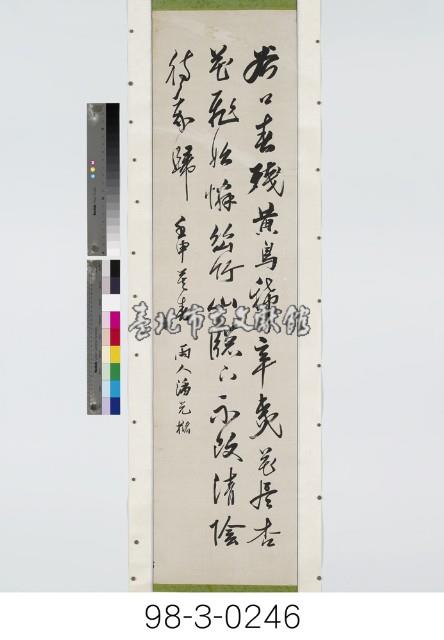 谷口春殘黃鳥稀辛夷花盡杏
花飛始憐幽竹山牕下不改清陰
待我歸 壬申春 雨人潘光楷
臺北市立文獻館
98-3-0246